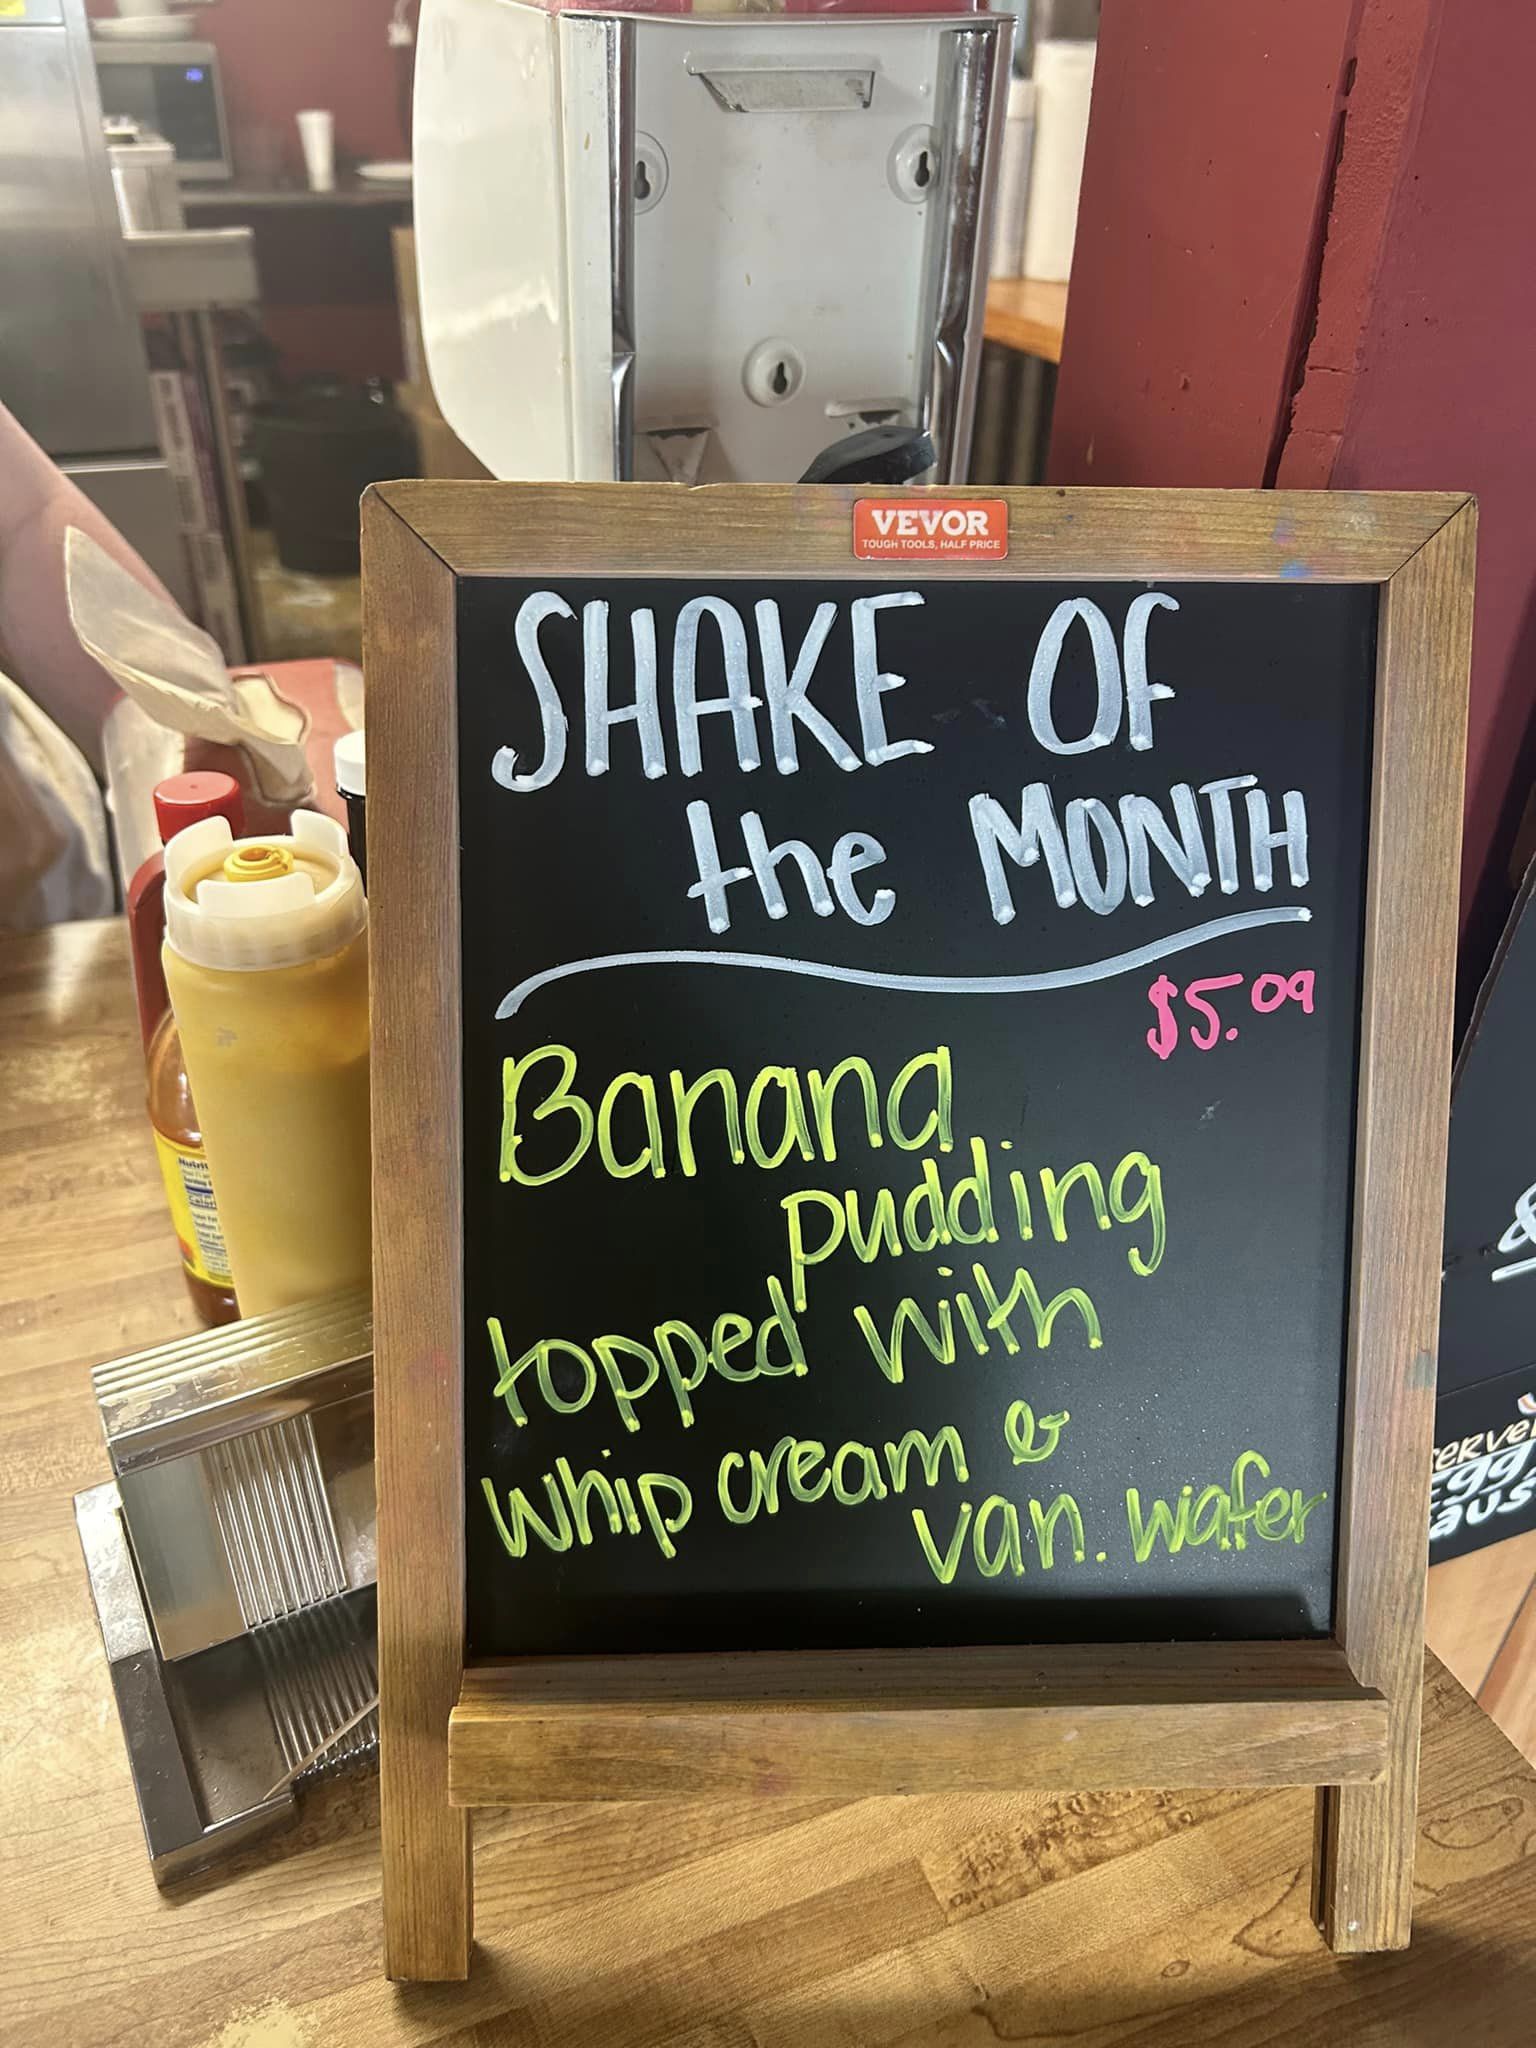 VEVOR
TOUGH TOOLS, HALF PRICE
SHAKE OF
the MONTH
$5.09
Banana
pudding
topped with
whip cream &
van. wafer
&